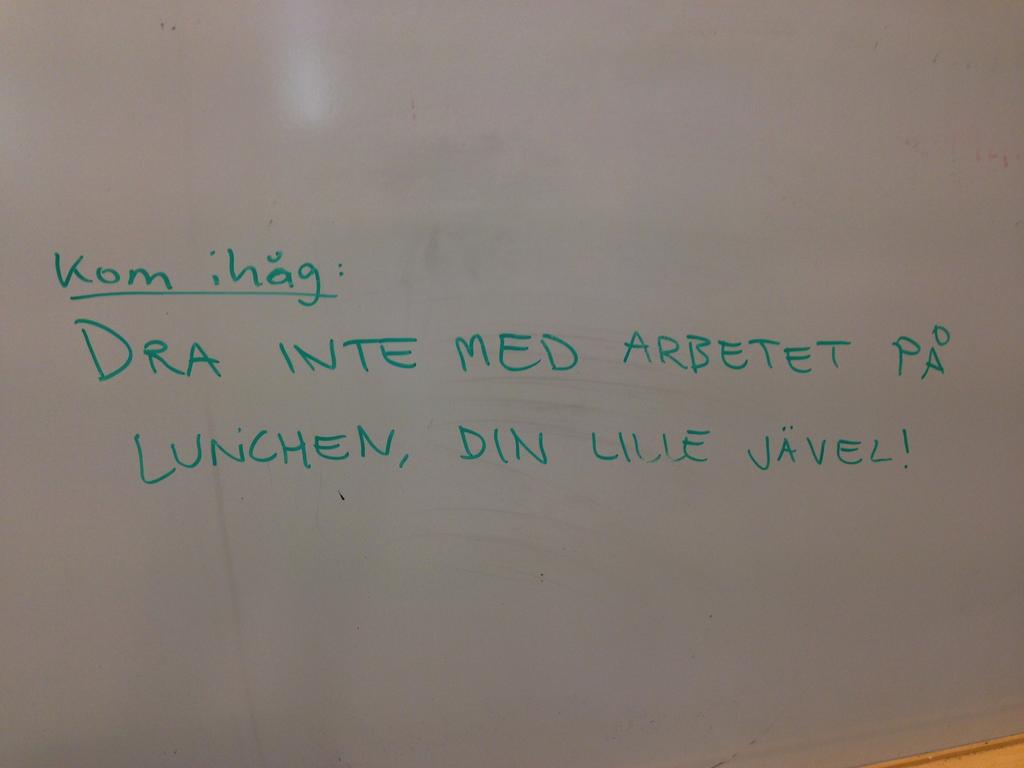 Kom ihåg:
DRA INTE MED ARBETET PÅ
LUNCHEN, DIN LILLE JÄVEL!